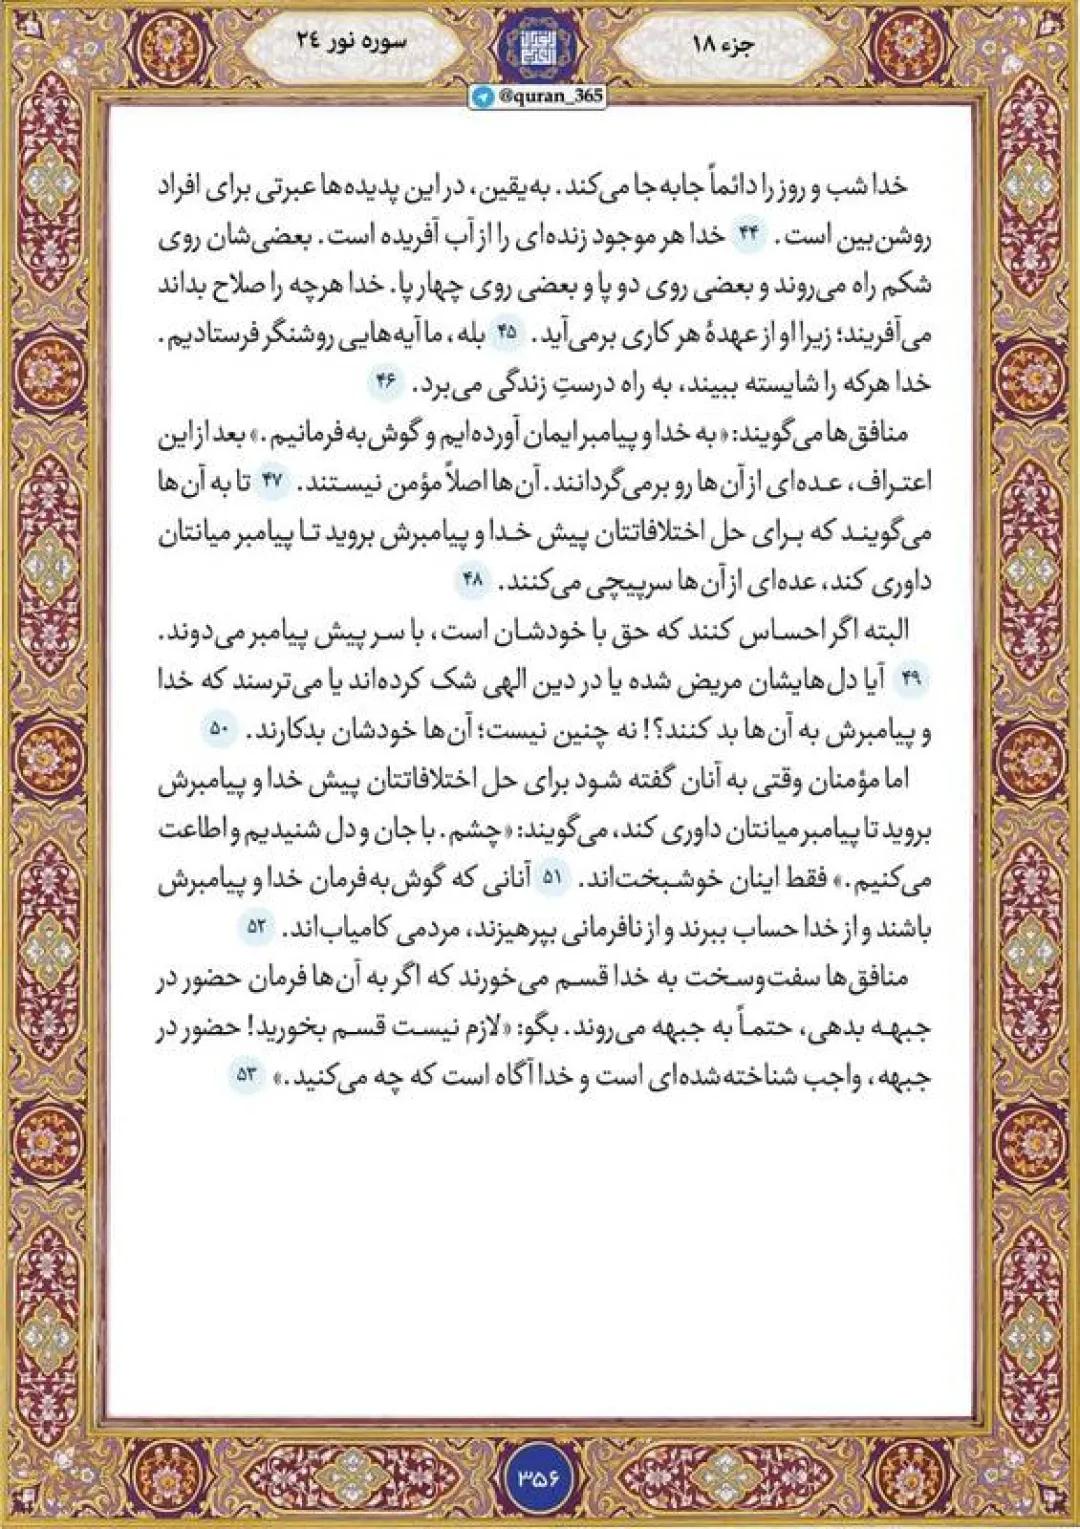 جزء ۱۸
سوره نور ۲۴
@quran_365
خدا شب و روز را دائماً جابه‌جا می‌کند. به‌یقین، در این پدیده‌ها عبرتی برای افراد
روشن‌بین است. ۴۴ خدا هر موجود زنده‌ای را از آب آفریده است. بعضی‌شان روی
شکم راه می‌روند و بعضی روی دو پا و بعضی روی چهار پا. خدا هرچه را صلاح بداند
می‌آفریند؛ زیرا او از عهدهٔ هر کاری برمی‌آید. ۴۵ بله، ما آیه‌هایی روشنگر فرستادیم.
خدا هرکه را شایسته ببیند، به راه درستِ زندگی می‌برد. ۴۶
منافق‌ها می‌گویند: «به خدا و پیامبر ایمان آورده‌ایم و گوش‌به‌فرمانیم.» بعد از این
اعتراف، عده‌ای از آن‌ها رو برمی‌گردانند. آن‌ها اصلاً مؤمن نیستند. ۴۷ تا به آن‌ها
می‌گویند که برای حل اختلافاتتان پیش خدا و پیامبرش بروید تا پیامبر میانتان
داوری کند، عده‌ای از آن‌ها سرپیچی می‌کنند. ۴۸
البته اگر احساس کنند که حق با خودشان است، با سر پیش پیامبر می‌دوند.
۴۹ آیا دل‌هایشان مریض شده یا در دین الهی شک کرده‌اند یا می‌ترسند که خدا
و پیامبرش به آن‌ها بد کنند؟! نه چنین نیست؛ آن‌ها خودشان بدکارند. ۵۰
اما مؤمنان وقتی به آنان گفته شود برای حل اختلافاتتان پیش خدا و پیامبرش
بروید تا پیامبر میانتان داوری کند، می‌گویند: «چشم. با جان و دل شنیدیم و اطاعت
می‌کنیم.» فقط اینان خوشبخت‌اند. ۵۱ آنانی که گوش‌به‌فرمان خدا و پیامبرش
باشند و از خدا حساب ببرند و از نافرمانی بپرهیزند، مردمی کامیاب‌اند. ۵۲
منافق‌ها سفت‌وسخت به خدا قسم می‌خورند که اگر به آن‌ها فرمان حضور در
جبهه بدهی، حتماً به جبهه می‌روند. بگو: «لازم نیست قسم بخورید! حضور در
جبهه، واجب شناخته‌شده‌ای است و خدا آگاه است که چه می‌کنید.» ۵۳
۳۵۶